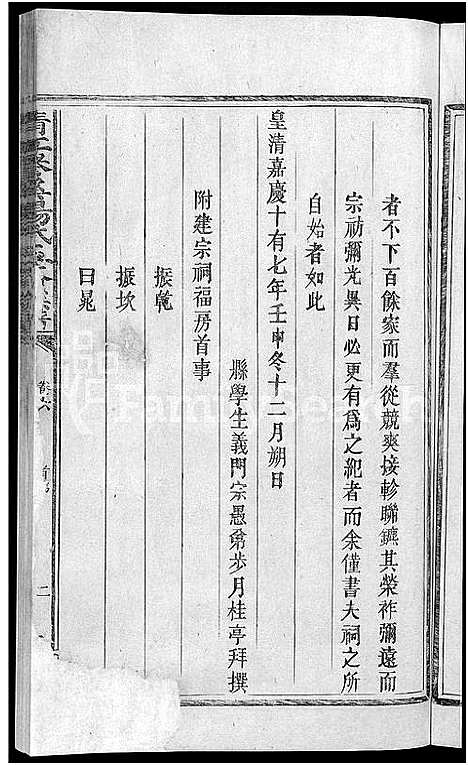 者不下百餘家而羣從競爽接軫聯鑣其榮祚彌遠而
宗祊彌光異日必更有爲之紀者而余僅書夫祠之所
自始者如此
皇清嘉慶十有七年壬申冬十二月朔日
縣學生義門宗愚弟步月桂亭拜撰
附建宗祠福房首事
振乾
振坎
日晁
二